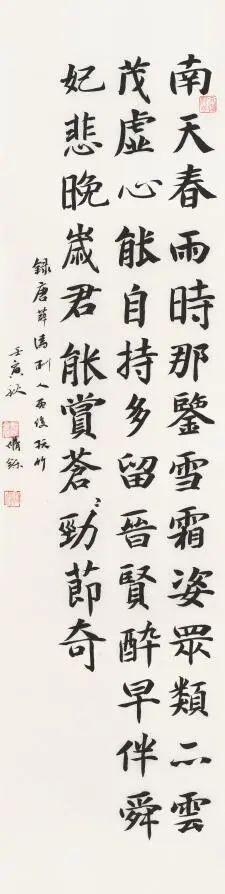 南天春雨時那鑒雪霜姿眾類亦雲
茂虛心能自持多留晉賢醉早伴舜
妃悲晚歲君能賞蒼〻勁節奇
錄唐薛濤酬人雨後玩竹
壬寅秋